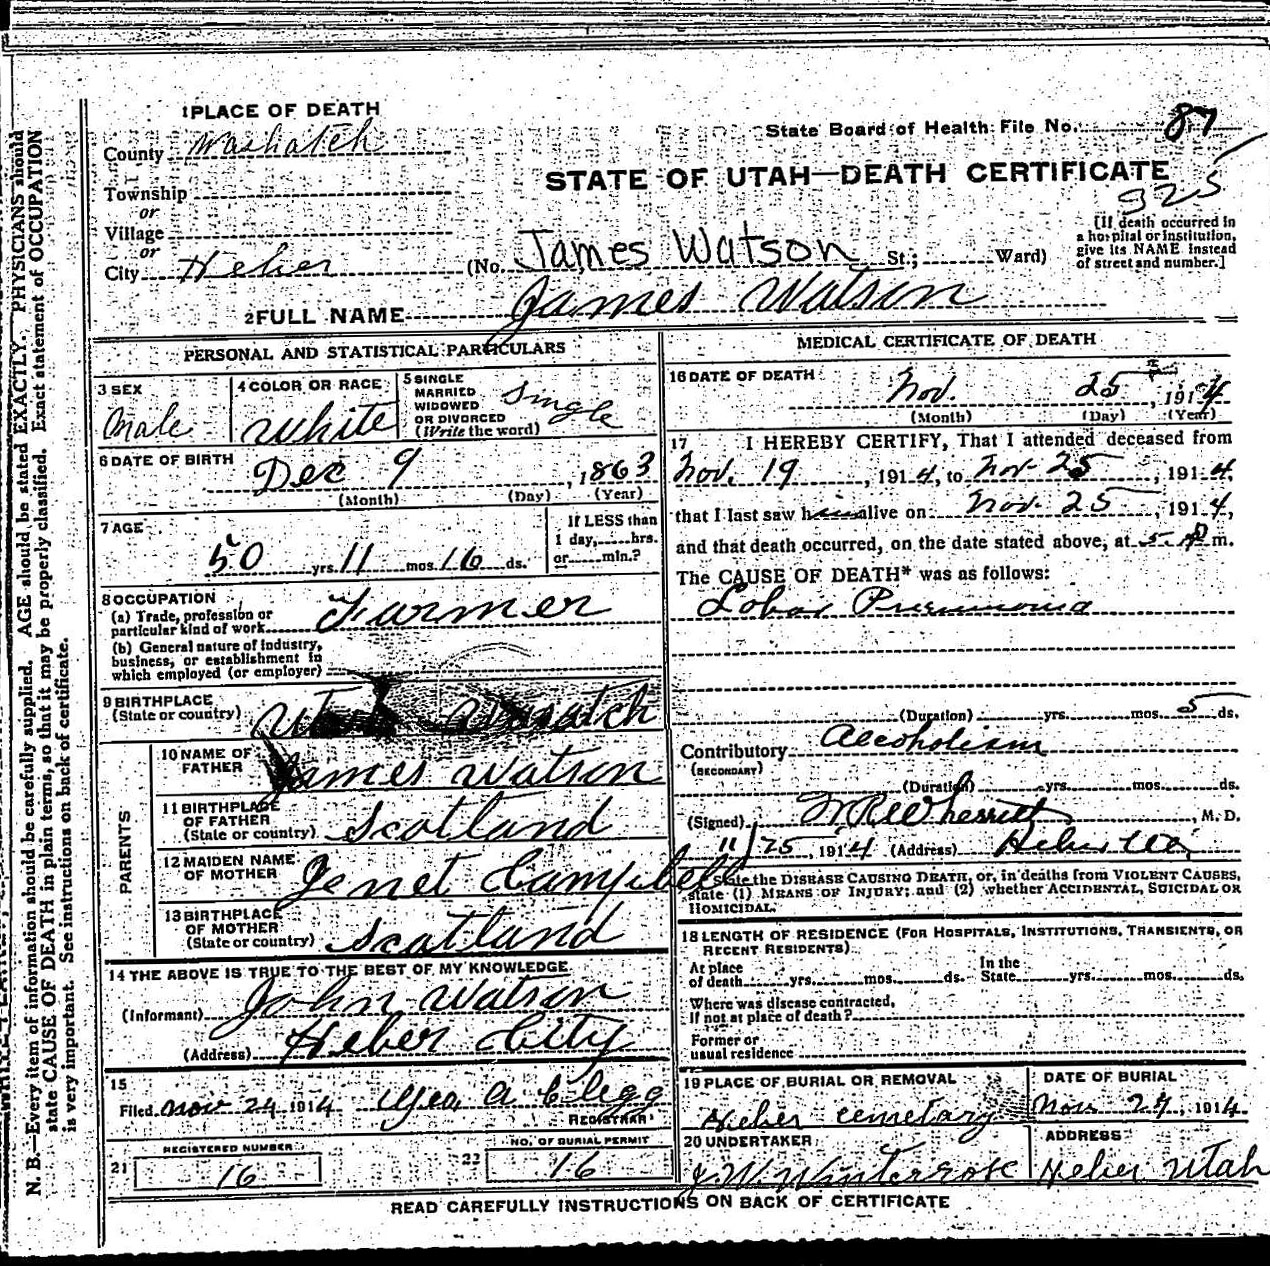 1 PLACE OF DEATH
County Washatch
Township
or
Village
or
City Heber
State Board of Health File No. 87
STATE OF UTAH—DEATH CERTIFICATE
925
(No. James Watson St.; Ward)
[If death occurred in
a hospital or institution,
give its NAME instead
of street and number.]
2 FULL NAME James Watson
PERSONAL AND STATISTICAL PARTICULARS
3 SEX
Male
4 COLOR OR RACE
White
5 SINGLE
MARRIED
WIDOWED
OR DIVORCED
(Write the word)
Single
6 DATE OF BIRTH
Dec 9, 1863
(Month) (Day) (Year)
7 AGE
50 yrs. 11 mos. 16 ds.
If LESS than
1 day, hrs.
or min.?
8 OCCUPATION
(a) Trade, profession or
particular kind of work Farmer
(b) General nature of industry,
business, or establishment in
which employed (or employer)
9 BIRTHPLACE
(State or country) Wasatch
PARENTS
10 NAME OF
FATHER James Watson
11 BIRTHPLACE
OF FATHER
(State or country) Scotland
12 MAIDEN NAME
OF MOTHER Jenet Campbell
13 BIRTHPLACE
OF MOTHER
(State or country) Scotland
14 THE ABOVE IS TRUE TO THE BEST OF MY KNOWLEDGE
(Informant) John Watson
(Address) Heber City
15
Filed Nov 24 1914 Geo A Clegg
REGISTRAR
REGISTERED NUMBER
21 16
NO. OF BURIAL PERMIT
22 16
MEDICAL CERTIFICATE OF DEATH
16 DATE OF DEATH
Nov. 25, 1914
(Month) (Day) (Year)
17 I HEREBY CERTIFY, That I attended deceased from
Nov. 19, 1914, to Nov. 25, 1914,
that I last saw him alive on Nov. 25, 1914,
and that death occurred, on the date stated above, at 5. P m.
The CAUSE OF DEATH* was as follows:
Lobar Pneumonia
(Duration) yrs. mos. 5 ds.
Contributory Alcoholism
(SECONDARY)
(Duration) yrs. mos. ds.
(Signed) W R Wherritt, M. D.
11/25, 1914 (Address) Heber Ut
State the DISEASE CAUSING DEATH, or, in deaths from VIOLENT CAUSES,
state (1) MEANS OF INJURY; and (2) whether ACCIDENTAL, SUICIDAL OR
HOMICIDAL.
18 LENGTH OF RESIDENCE (FOR HOSPITALS, INSTITUTIONS, TRANSIENTS, OR
RECENT RESIDENTS)
At place
of death yrs. mos. ds.
In the
State yrs. mos. ds.
Where was disease contracted,
if not at place of death?
Former or
usual residence
19 PLACE OF BURIAL OR REMOVAL
Heber cemetary
DATE OF BURIAL
Nov. 27, 1914
20 UNDERTAKER
J. W. Winterrose
ADDRESS
Heber Utah
READ CAREFULLY INSTRUCTIONS ON BACK OF CERTIFICATE
N. B.—Every item of information should be carefully supplied. AGE should be stated EXACTLY. PHYSICIANS should
state CAUSE OF DEATH in plain terms, so that it may be properly classified. Exact statement of OCCUPATION
is very important. See instructions on back of certificate.